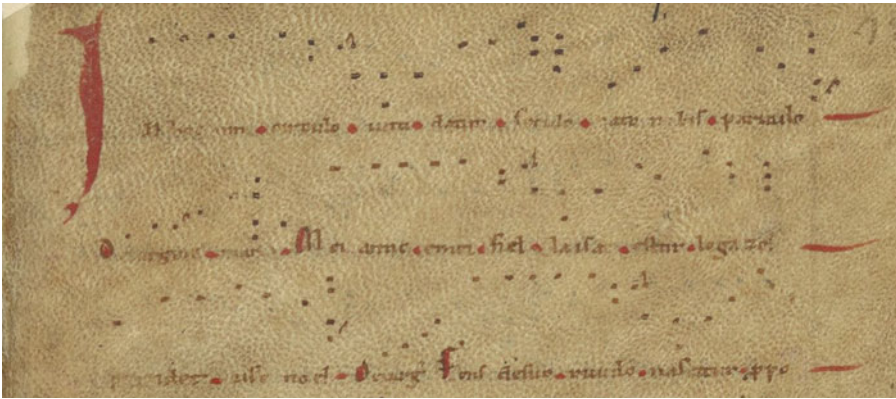 In hoc anni circulo uita datur seculo nato nobis paruulo
De uirgine maria Mei amic emei fiel laisat estar lo gazel
aprendet u so noel De uirg Fons de suo riuulo nascitur pro